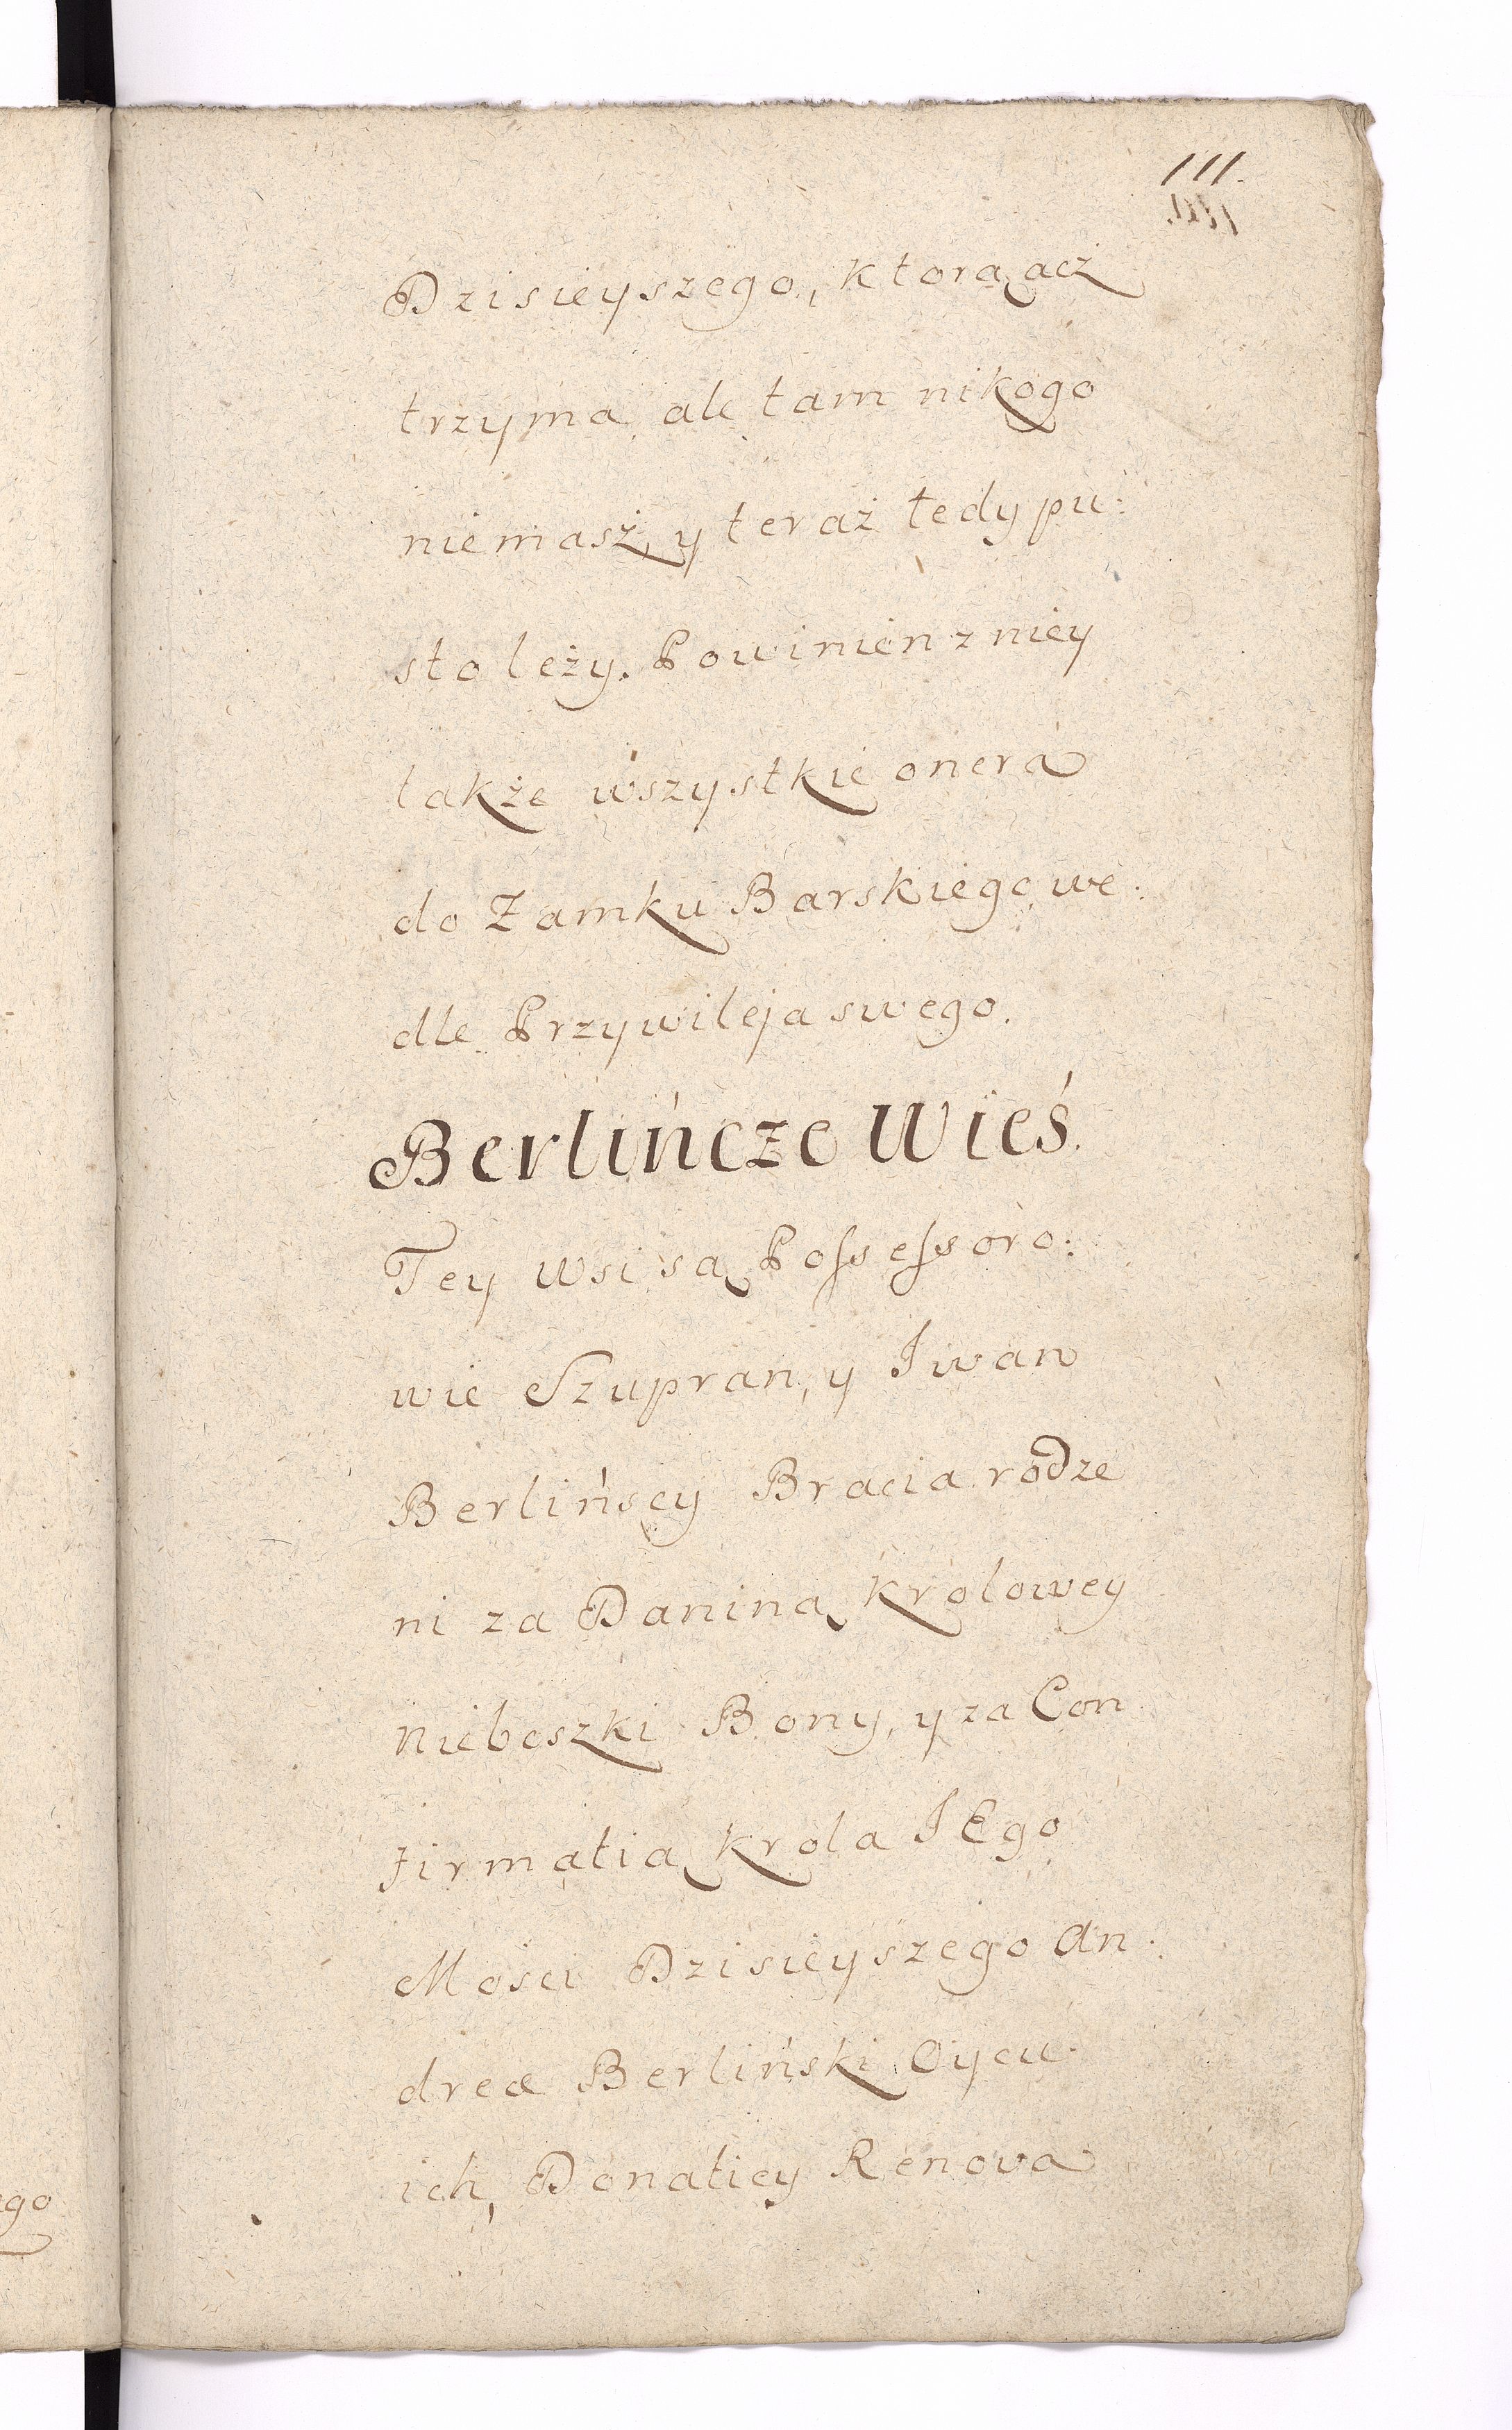 111.
Dzisieyszego, ktorą acż
trzyma, ale tam nikogo
niemasż, y teraż tedy pu:
sto leży. Powinien z niey
także wszystkie onera
do Zamku Barskiego we:
dle Przywileja swego.
Berlińcze Wieś.
Tey wsi są Possessoro:
wie Szupran, y Iwan
Berlińscy Bracia rodze
ni za Daniną Krolowey
Nieboszki Bony, y za Con
firmatią Krola IEgo
Mości Dzisieyszego An:
dreæ Berliński Oycu
ich, Donatiey Renova
ego